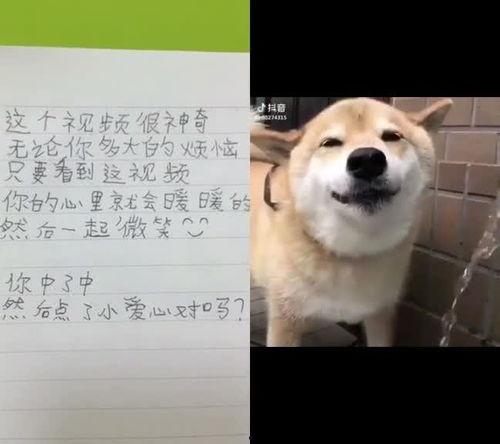 这个视频很神奇
无论你多大的烦恼
只要看到这视频
你的心里就会暖暖的
然后一起微笑
你中了中
然后点了小爱心对吗?
抖音